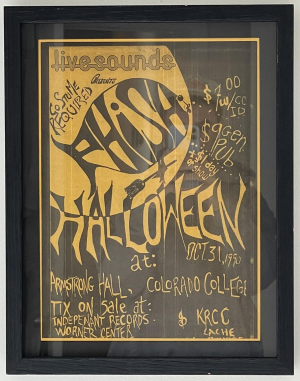 livesounds
Presents
COSTUME
REQUIRED
PHISH
$7.00
w/CC
ID
$9 Gen
Pub.
+ $1 day
of show
HALLOWEEN
OCT 31, 1990
at:
ARMSTRONG HALL, COLORADO COLLEGE
TIX ON SALE at:
INDEPENANT RECORDS
WORNER CENTER
$ KRCC
CACHE